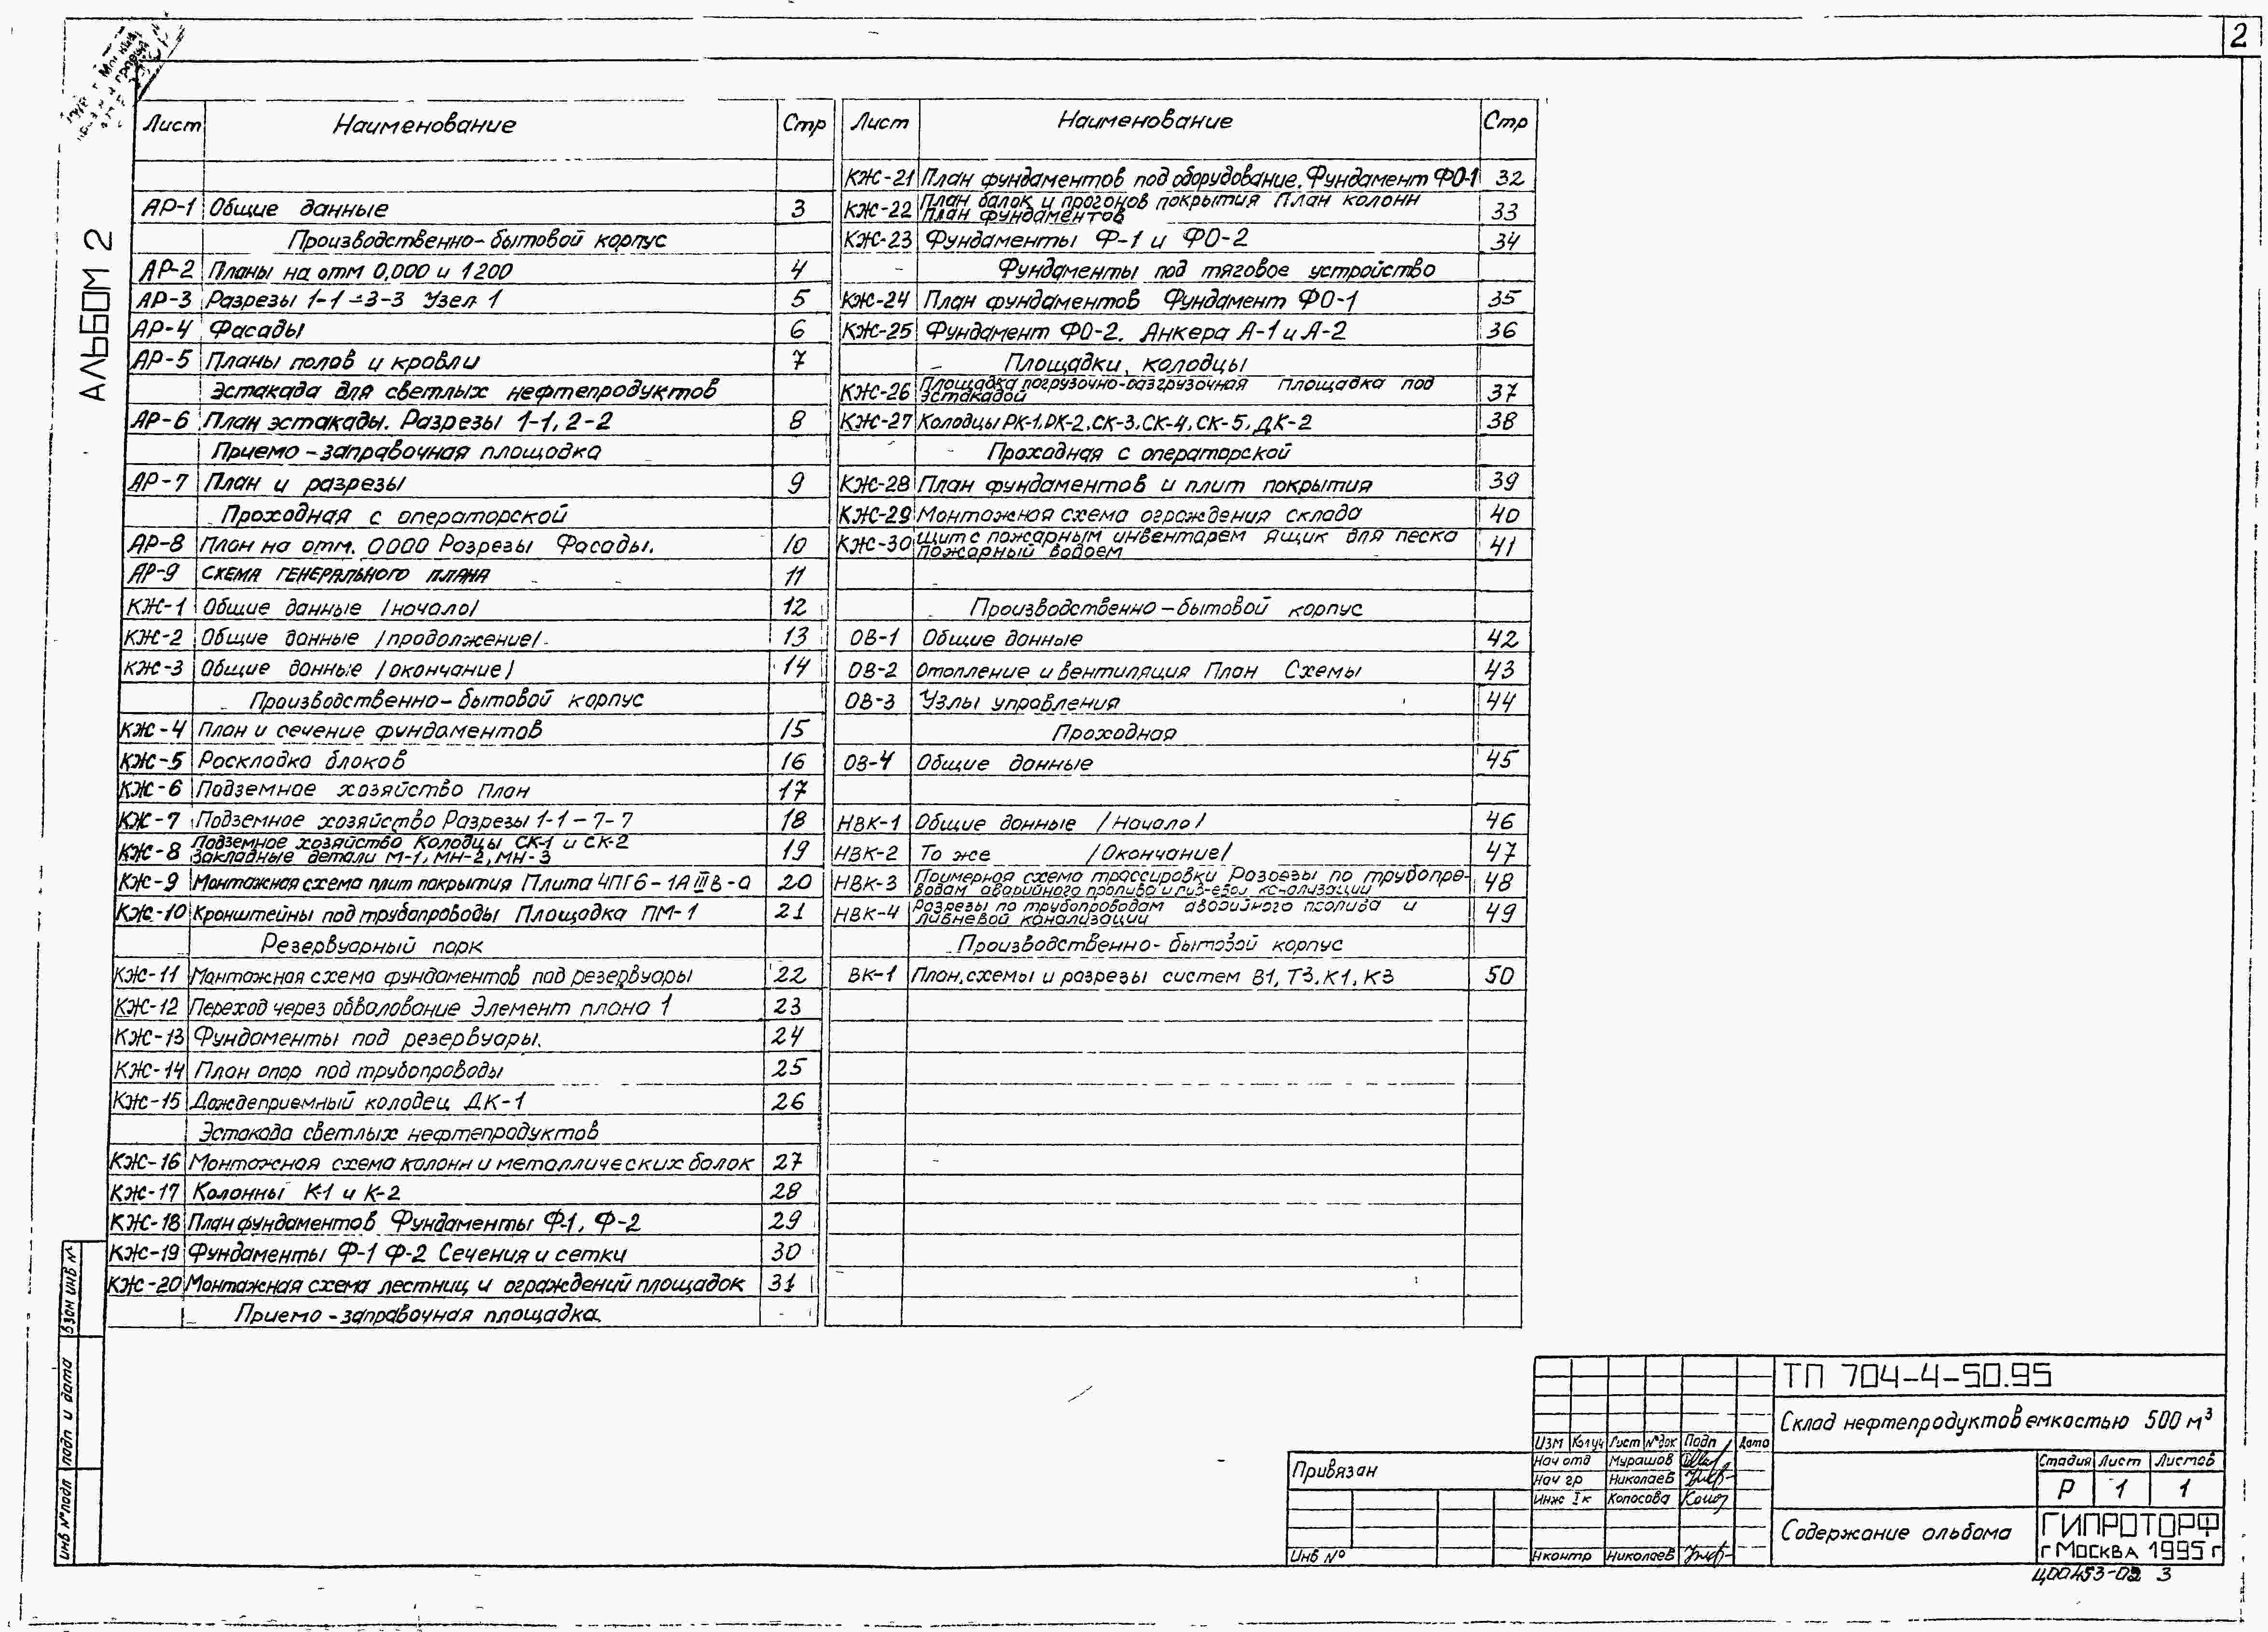 2
АЛЬБОМ 2
Лист Наименование Стр
АР-1 Общие данные 3
Производственно-бытовой корпус
АР-2 Планы на отм 0,000 и 1200 4
АР-3 Разрезы 1-1÷3-3 Узел 1 5
АР-4 Фасады 6
АР-5 Планы полов и кровли 7
Эстакада для светлых нефтепродуктов
АР-6 План эстакады. Разрезы 1-1, 2-2 8
Приемо-заправочная площадка
АР-7 План и разрезы 9
Проходная с операторской
АР-8 План на отм. 0000 Розрезы Фасады. 10
АР-9 СХЕМА ГЕНЕРАЛЬНОГО ПЛАНА 11
КЖ-1 Общие данные /начало/ 12
КЖ-2 Общие данные /продолжение/. 13
КЖ-3 Общие данные /окончание/ 14
Производственно-бытовой корпус
КЖ-4 План и сечение фундаментов 15
КЖ-5 Раскладка блоков 16
КЖ-6 Подземное хозяйство План 17
КЖ-7 Подземное хозяйство Разрезы 1-1-7-7 18
КЖ-8 Подземное хозяйство Колодцы СК-1 и СК-2
Закладные детали М-1, МН-2, МН-3 19
КЖ-9 Монтажная схема плит покрытия Плита 4ПГ6-1АIIIВ-а 20
КЖ-10 Кронштейны под трубопроводы Площадка ПМ-1 21
Резервуарный парк
КЖ-11 Монтажная схема фундаментов под резервуары 22
КЖ-12 Переход через обвалование Элемент плана 1 23
КЖ-13 Фундаменты под резервуары. 24
КЖ-14 План опор под трубопроводы 25
КЖ-15 Дождеприемный колодец ДК-1 26
Эстакада светлых нефтепродуктов
КЖ-16 Монтажная схема колонн и металлических балок 27
КЖ-17 Колонны К-1 и К-2 28
КЖ-18 План фундаментов Фундаменты Ф-1, Ф-2 29
КЖ-19 Фундаменты Ф-1 Ф-2 Сечения и сетки 30
КЖ-20 Монтажная схема лестниц и ограждений площадок 31
Приемо-заправочная площадка.
Лист Наименование Стр
КЖ-21 План фундаментов под оборудование. Фундамент ФО-1 32
КЖ-22 План балок и прогонов покрытия План колонн
План фундаментов 33
КЖ-23 Фундаменты Ф-1 и ФО-2 34
Фундаменты под тяговое устройство
КЖ-24 План фундаментов Фундамент ФО-1 35
КЖ-25 Фундамент ФО-2. Анкера А-1 и А-2 36
Площадки, колодцы
КЖ-26 Площадка погрузочно-разгрузочная Площадка под
эстакадой 37
КЖ-27 Колодцы РК-1, РК-2, СК-3, СК-4, СК-5, ДК-2 38
Проходная с операторской
КЖ-28 План фундаментов и плит покрытия 39
КЖ-29 Монтажная схема ограждения склада 40
КЖ-30 Щит с пожарным инвентарем Ящик для песка
Пожарный водоем 41
Производственно-бытовой корпус
ОВ-1 Общие данные 42
ОВ-2 Отопление и вентиляция План Схемы 43
ОВ-3 Узлы управления 44
Проходная
ОВ-4 Общие данные 45
НВК-1 Общие данные /Начало/ 46
НВК-2 То же /Окончание/ 47
НВК-3 Примерная схема трассировки Разрезы по трубопро-
водам аварийного пролива и канализации 48
НВК-4 Разрезы по трубопроводам аварийного пролива и
ливневой канализации 49
Производственно-бытовой корпус
ВК-1 План, схемы и разрезы систем В1, Т3, К1, К3 50
Взам инв №
Подп и дата
Инв № подп
Привязан
Инв №
Изм Колуч Лист №док Подп Дата
Нач отд Мурашов
Нач гр Николаев
Инж I к Копосова
Н контр Николаев
ТП 704-4-50.95
Склад нефтепродуктов емкостью 500 м³
Стадия Лист Листов
Р 1 1
Содержание альбома
ГИПРОТОРФ
г Москва 1995 г
Ц00453-02 3